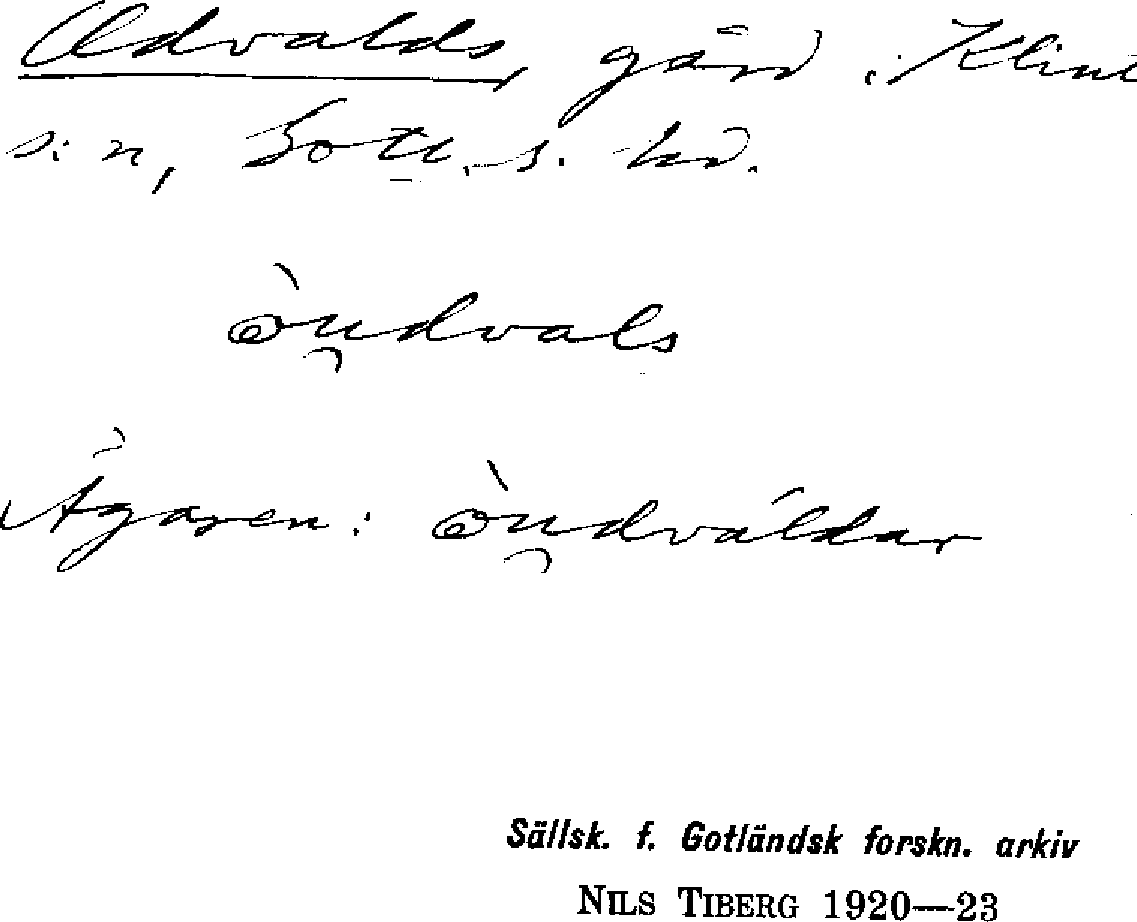 Odvalds, gård i Klint
s:n, Gotl. s. hd.
ònd̯vals
Ägaren: ònd̯váldar
Sällsk. f. Gotländsk forskn. arkiv
NILS TIBERG 1920—23